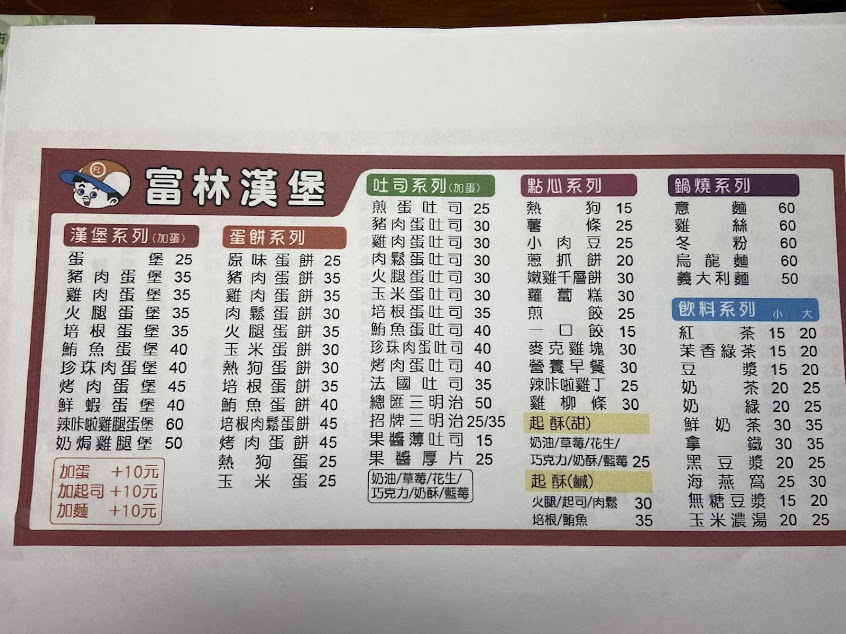 FL
富林漢堡
漢堡系列(加蛋)
蛋堡 25
豬肉蛋堡 35
雞肉蛋堡 35
火腿蛋堡 35
培根蛋堡 35
鮪魚蛋堡 40
珍珠肉蛋堡 40
烤肉蛋堡 45
鮮蝦蛋堡 40
辣咔啦雞腿蛋堡 60
奶焗雞腿堡 50
加蛋 +10元
加起司 +10元
加麵 +10元
蛋餅系列
原味蛋餅 25
豬肉蛋餅 35
雞肉蛋餅 35
肉鬆蛋餅 30
火腿蛋餅 35
玉米蛋餅 30
熱狗蛋餅 30
培根蛋餅 35
鮪魚蛋餅 40
培根肉鬆蛋餅 45
烤肉蛋餅 45
熱狗蛋 25
玉米蛋 25
吐司系列(加蛋)
煎蛋吐司 25
豬肉蛋吐司 30
雞肉蛋吐司 30
肉鬆蛋吐司 30
火腿蛋吐司 30
玉米蛋吐司 30
培根蛋吐司 35
鮪魚蛋吐司 40
珍珠肉蛋吐司 40
烤肉蛋吐司 40
法國吐司 35
總匯三明治 50
招牌三明治 25/35
果醬薄吐司 15
果醬厚片 25
奶油/草莓/花生/
巧克力/奶酥/藍莓
點心系列
熱狗 15
薯條 25
小肉豆 25
蔥抓餅 20
嫩雞千層餅 30
蘿蔔糕 30
煎餃 25
一口餃 15
麥克雞塊 30
營養早餐 30
辣咔啦雞丁 25
雞柳條 30
起酥(甜)
奶油/草莓/花生/
巧克力/奶酥/藍莓 25
起酥(鹹)
火腿/起司/肉鬆 30
培根/鮪魚 35
鍋燒系列
意麵 60
雞絲 60
冬粉 60
烏龍麵 60
義大利麵 50
飲料系列 小 大
紅茶 15 20
茉香綠茶 15 20
豆漿 15 20
奶茶 20 25
奶綠 20 25
鮮奶茶 30 35
拿鐵 30 35
黑豆漿 20 25
海燕窩 25 30
無糖豆漿 15 20
玉米濃湯 20 25